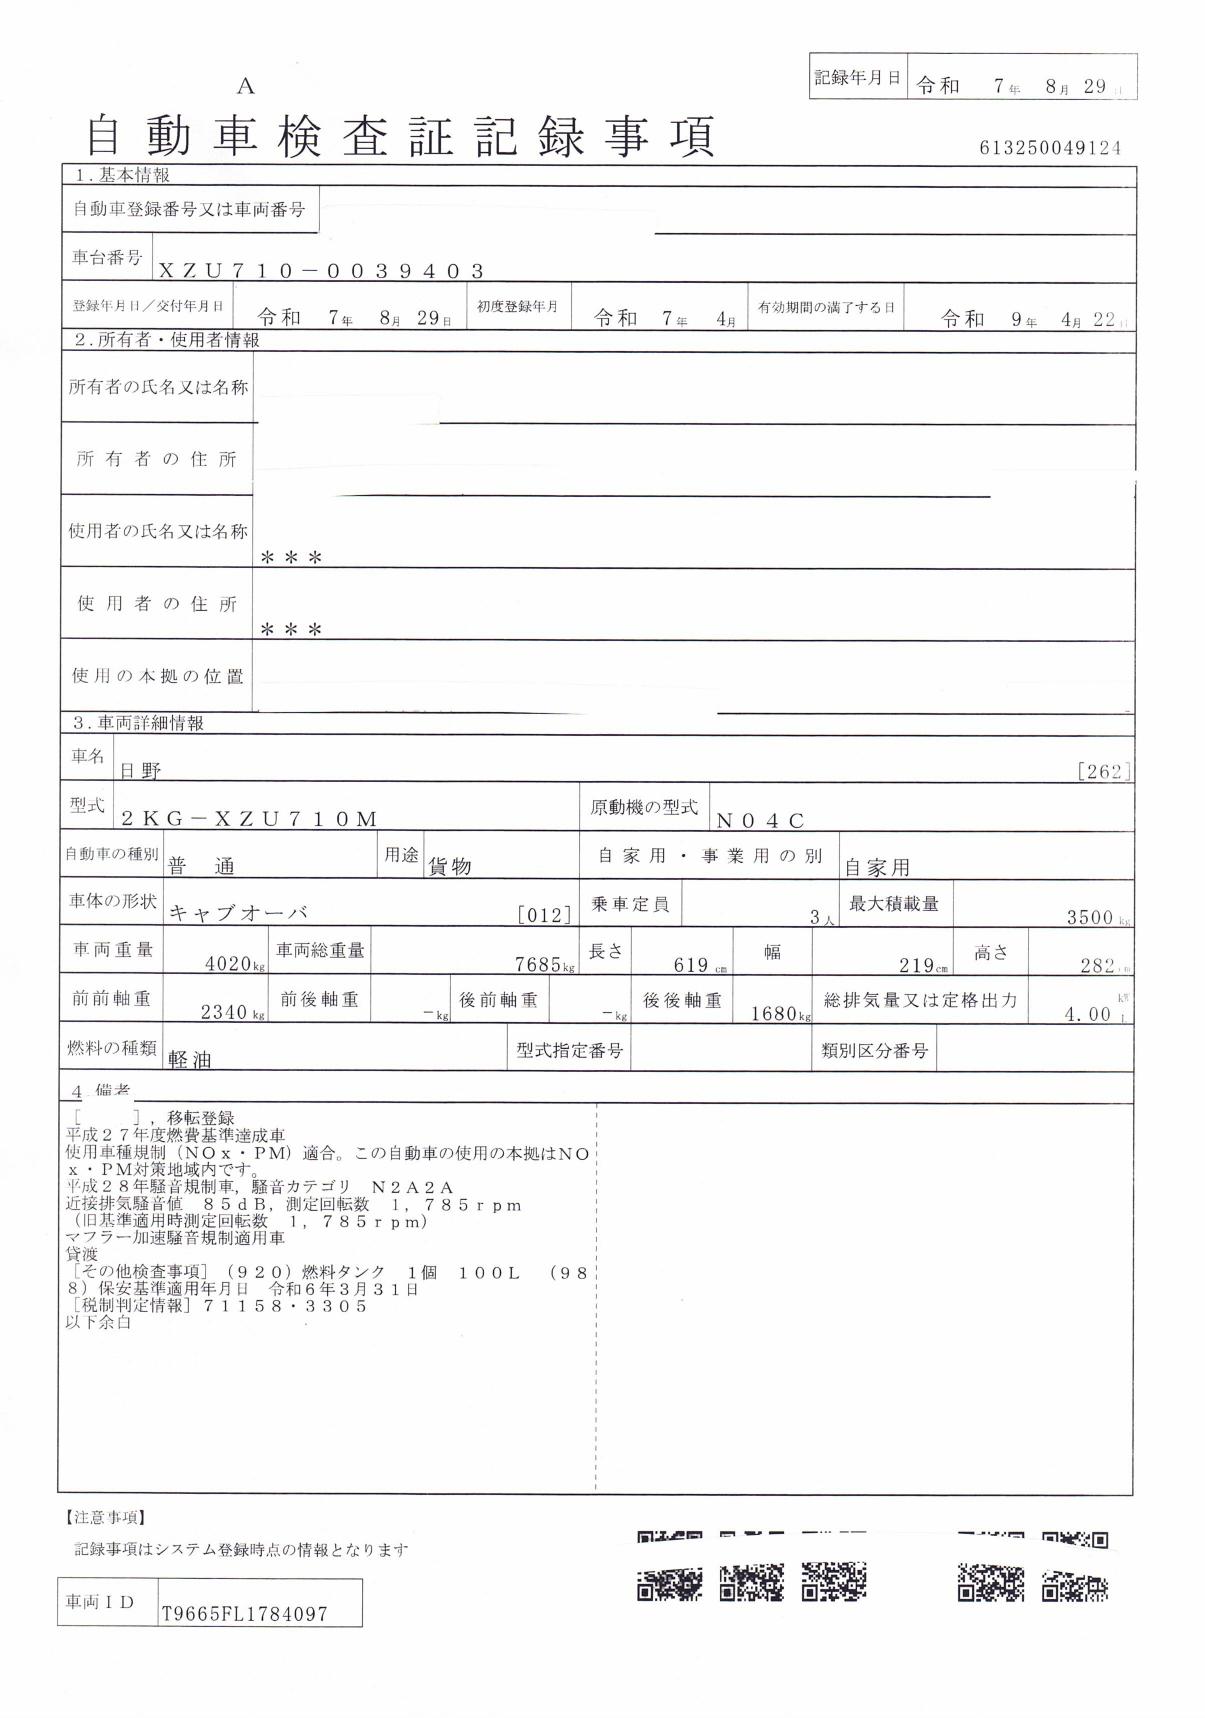 A
記録年月日 令和 7年 8月 29日
自動車検査証記録事項
613250049124
1.基本情報
自動車登録番号又は車両番号
車台番号 XZU710-0039403
登録年月日/交付年月日 令和 7年 8月 29日 初度登録年月 令和 7年 4月 有効期間の満了する日 令和 9年 4月 22日
2.所有者・使用者情報
所有者の氏名又は名称
所有者の住所
使用者の氏名又は名称 ***
使用者の住所 ***
使用の本拠の位置
3.車両詳細情報
車名 日野 [262]
型式 2KG-XZU710M 原動機の型式 N04C
自動車の種別 普通 用途 貨物 自家用・事業用の別 自家用
車体の形状 キャブオーバ [012] 乗車定員 3人 最大積載量 3500kg
車両重量 4020kg 車両総重量 7685kg 長さ 619cm 幅 219cm 高さ 282cm
前前軸重 2340kg 前後軸重 -kg 後前軸重 -kg 後後軸重 1680kg 総排気量又は定格出力 4.00 kW L
燃料の種類 軽油 型式指定番号 類別区分番号
4.備考
[ ],移転登録
平成27年度燃費基準達成車
使用車種規制(NOx・PM)適合。この自動車の使用の本拠はNO
x・PM対策地域内です。
平成28年騒音規制車,騒音カテゴリ N2A2A
近接排気騒音値 85dB,測定回転数 1,785rpm
(旧基準適用時測定回転数 1,785rpm)
マフラー加速騒音規制適用車
貸渡
[その他検査事項](920)燃料タンク 1個 100L (98
8)保安基準適用年月日 令和6年3月31日
[税制判定情報]71158・3305
以下余白
【注意事項】
記録事項はシステム登録時点の情報となります
車両ID T9665FL1784097